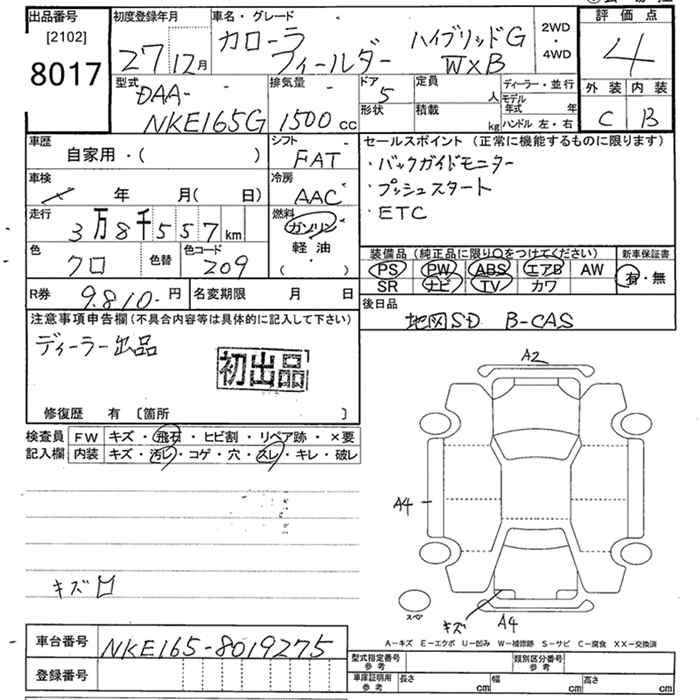 出品番号
[2102]
8017
初度登録年月
27年12月
車名・グレード
カローラ
フィールダー
ハイブリッドG
W×B
2WD
・
4WD
評価点
4
外装 内装
C B
型式
DAA-
NKE165G
排気量
1500cc
ドア
5
形状
定員
人
積載
kg
ディーラー・並行
モデル年式 年
ハンドル 左・右
車歴
自家用・( )
シフト
FAT
車検
年 月( 日)
冷房
AAC
走行
3万8千557km
燃料
ガソリン
軽油
( )
色
クロ
色替
色コード
209
R券
9.810.-円
名変期限 月 日
セールスポイント(正常に機能するものに限ります)
・バックガイドモニター
・プッシュスタート
・ETC
装備品(純正品に限り○をつけてください)
新車保証書
PS PW ABS エアB AW
SR ナビ TV カワ
有・無
後日品
地図SD B-CAS
注意事項申告欄(不具合内容等は具体的に記入して下さい)
ディーラー出品
初出品
修復歴 有 〔箇所 〕
検査員
記入欄
FW キズ・飛石・ヒビ割・リペア跡・×要
内装 キズ・汚レ・コゲ・穴・スレ・キレ・破レ
キズ
A2
A4
スペア
キズ
A4
A-キズ E-エクボ U-凹み W-補修跡 S-サビ C-腐食 XX-交換済
車台番号
NKE165-8019275
登録番号
型式指定番号
参考
類別区分番号
参考
車庫証明用
参考
長さ cm
幅 cm
高さ cm